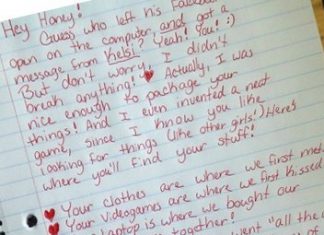 Hey Honey!
Guess who left his Facebook
open on the computer and got a
message from Kelsi? Yeah! You! :)
But don't worry, I didn't
break anything! Actually, I was
nice enough to package your
things! And I even invented a neat
game, since I know you like
looking for things (like other girls!) Here's
where you'll find your stuff!
Your clothes are where we first met.
Your Videogames are where we first kissed
laptop is where we bought our
together!
went "all the
of